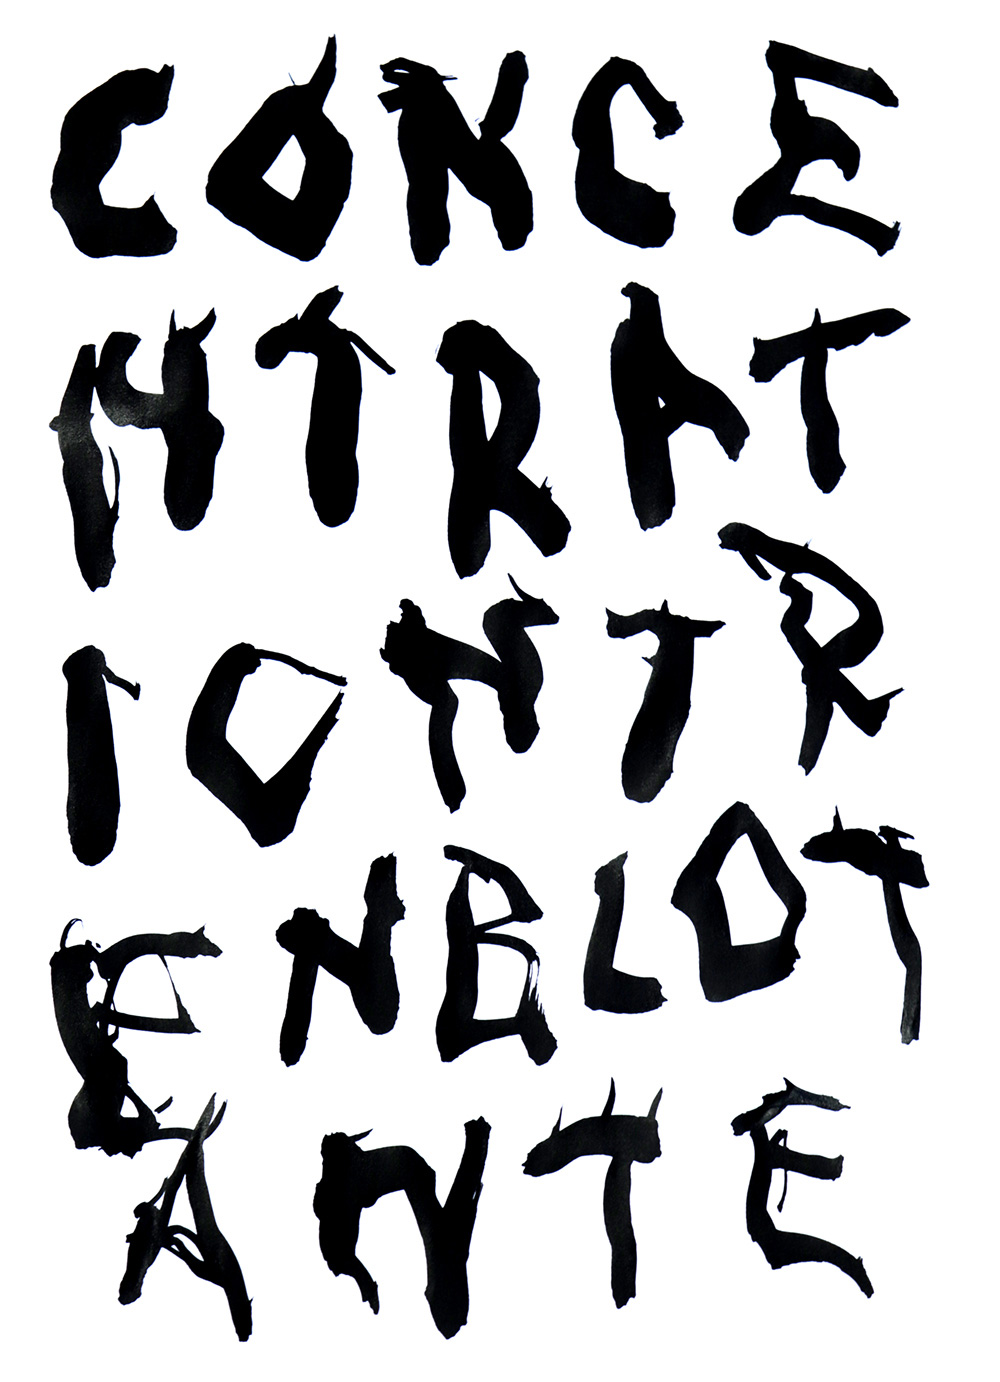 CONCE
NTRAT
IONTR
ENBLOT
ANTE